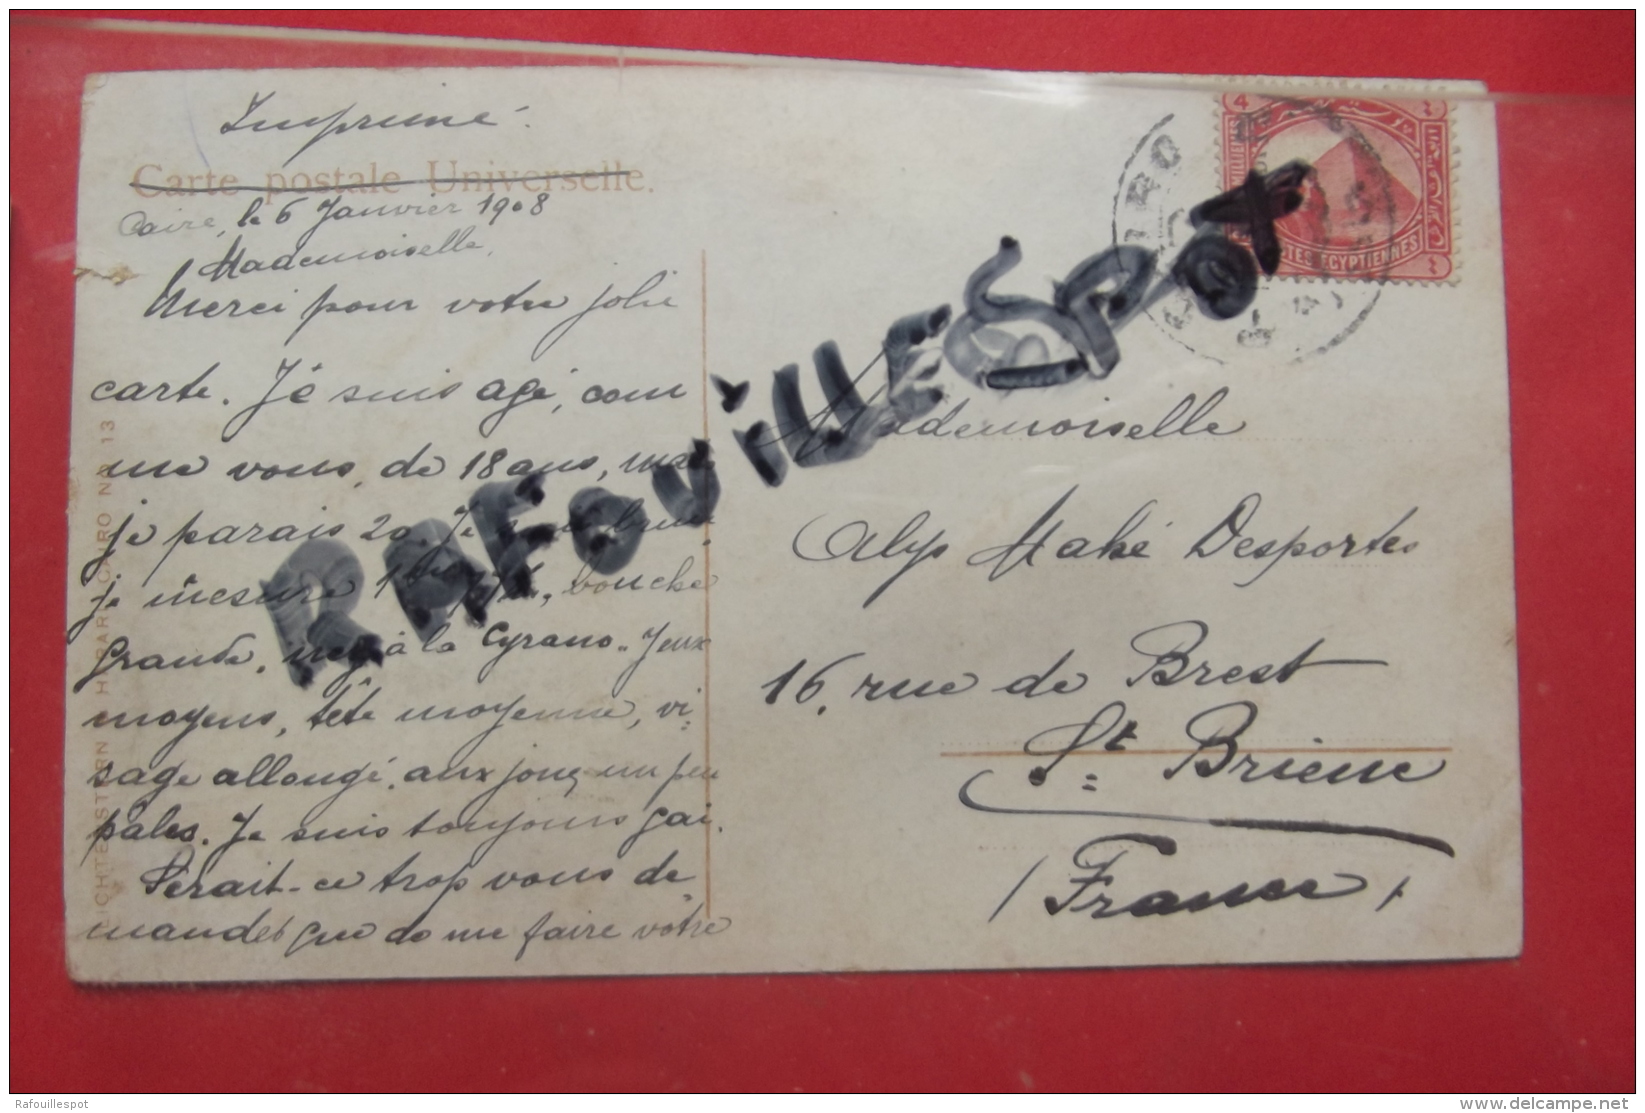 Imprimé.
Carte postale Universelle.
Caire, le 6 Janvier 1908
Mademoiselle,
Merci pour votre jolie
carte. Je suis agé, com
me vous, de 18 ans, mais
je parais 20. Je suis brun,
je mesure bouche
grande, nez à la Cyrano. Yeux
moyens, tête moyenne, vi=
sage allongé, aux joues un peu
pâles. Je suis toujours gai.
Serait-ce trop vous de
mander que de me faire vôtre
LICHTENSTERN & HARARI, CAIRO No. 13
RAFOUILLESPOT
4
POSTES EGYPTIENNES
CAIRO
Mademoiselle
Alys Mahé Desportes
16, rue de Brest
St Brieuc
(France)
Rafouillespot
www.delcampe.net